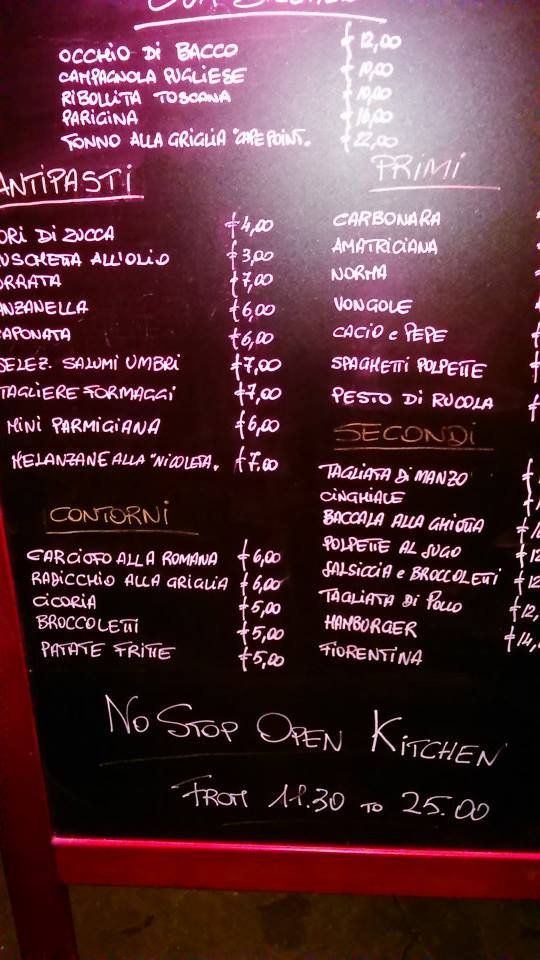 OCCHIO DI BACCO € 12,00
CAMPAGNOLA PUGLIESE € 10,00
RIBOLLITA TOSCANA € 10,00
PARIGINA € 16,00
TONNO ALLA GRIGLIA "CAPE POINT. € 22,00
ANTIPASTI
ORI DI ZUCCA € 4,00
USCHETTA ALL'OLIO € 3,00
RRATA € 7,00
ANZANELLA € 6,00
APONATA € 6,00
SELEZ. SALUMI UMBRI € 7,00
TAGLIERE FORMAGGI € 7,00
MINI PARMIGIANA € 6,00
MELANZANE ALLA "NICOLETA. € 7.00
CONTORNI
CARCIOFO ALLA ROMANA € 6,00
RADICCHIO ALLA GRIGLIA € 6,00
CICORIA € 5,00
BROCCOLETTI € 5,00
PATATE FRITTE € 5,00
PRIMI
CARBONARA €
AMATRICIANA €
NORMA €
VONGOLE €
CACIO e PEPE €
SPAGHETTI POLPETTE €
PESTO DI RUCOLA €
SECONDI
TAGLIATA DI MANZO €
CINGHIALE €
BACCALA ALLA GHIOTTA €
POLPETTE AL SUGO € 12
SALSICCIA e BROCCOLETTI € 12
TAGLIATA DI POLLO € 12,
HAMBURGER € 14,
FIORENTINA
NO STOP OPEN KITCHEN
FROM 11.30 TO 25.00